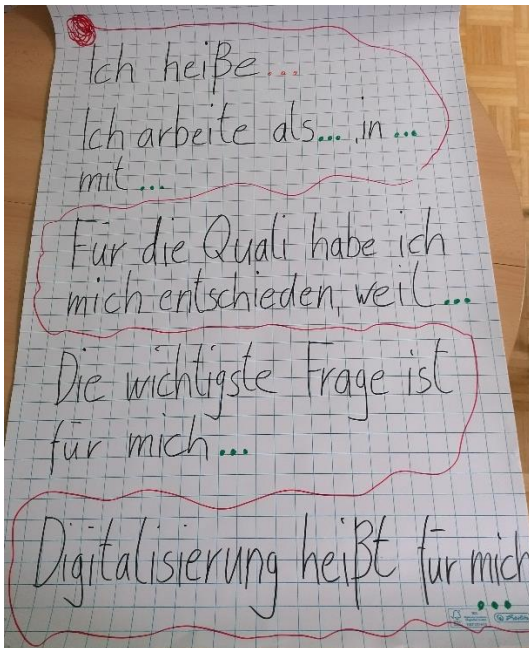 Ich heiße...
Ich arbeite als..., in...
mit...
Für die Quali habe ich
mich entschieden, weil...
Die wichtigste Frage ist
für mich...
Digitalisierung heißt für mich
...